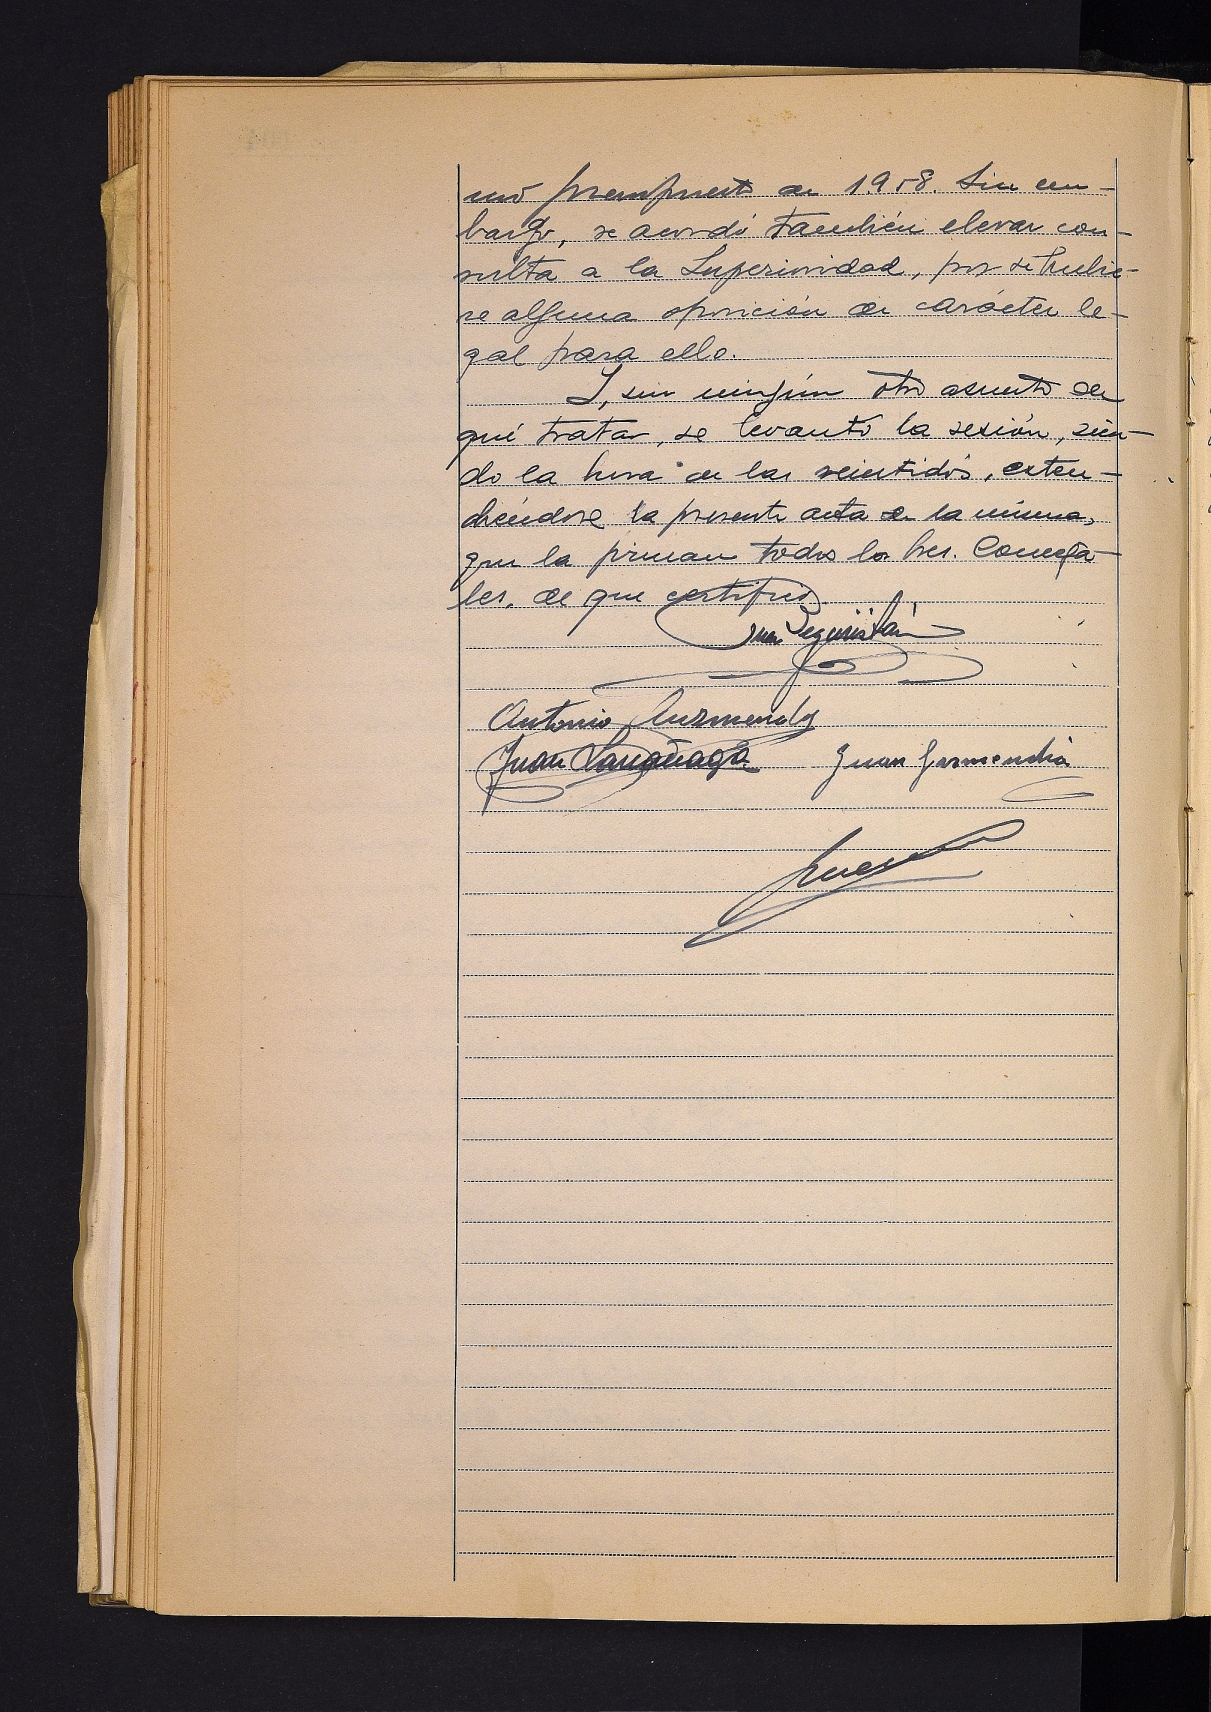 mo presupuesto de 1.958. Sin em-
bargo, se acordó también elevar con-
sulta a la Superioridad, por si hubie-
se alguna oposición de carácter le-
gal para ello.
Y, sin ningún otro asunto de
qué tratar, se levantó la sesión, sien-
do la hora de las veintidós, exten-
diéndose la presente acta de la misma,
que la firman todos los Sres. Conceja-
les, de que certifico.
Juan Beguiristain
Antonio Auzmendi
Juan Garmendia